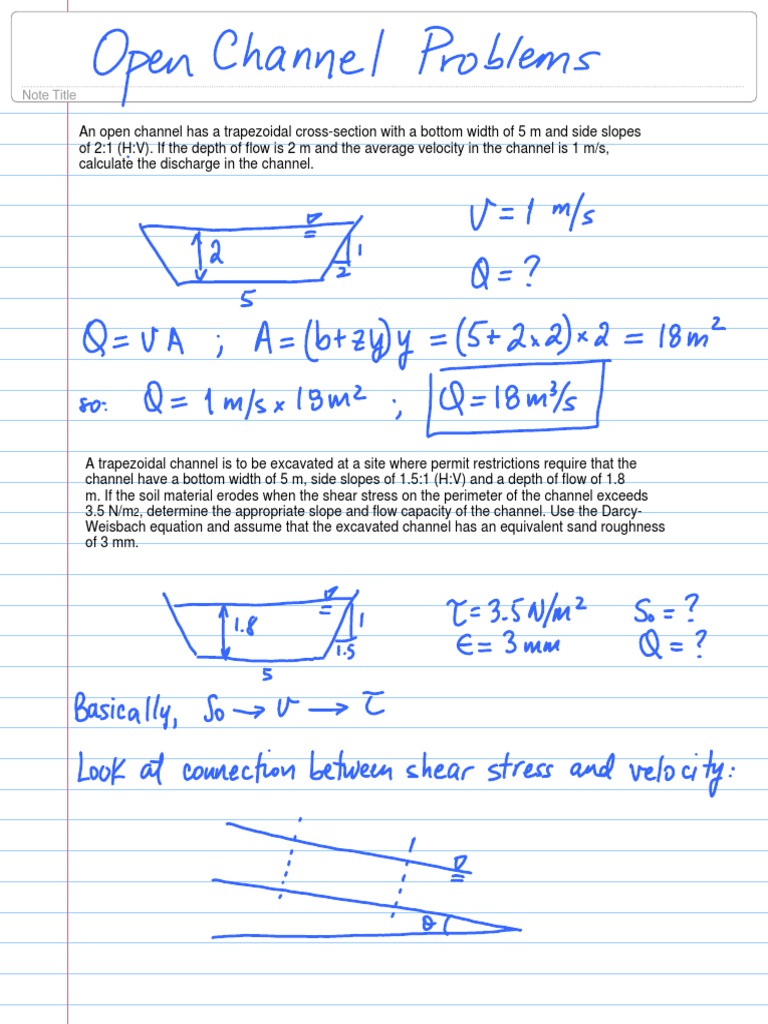 Open Channel Problems
Note Title
An open channel has a trapezoidal cross-section with a bottom width of 5 m and side slopes
of 2:1 (H:V). If the depth of flow is 2 m and the average velocity in the channel is 1 m/s,
calculate the discharge in the channel.
2
1
2
5
V = 1 m/s
Q = ?
Q = VA ; A = (b+zy)y = (5+2×2)×2 = 18m²
so: Q = 1 m/s × 18m² ; Q = 18 m³/s
A trapezoidal channel is to be excavated at a site where permit restrictions require that the
channel have a bottom width of 5 m, side slopes of 1.5:1 (H:V) and a depth of flow of 1.8
m. If the soil material erodes when the shear stress on the perimeter of the channel exceeds
3.5 N/m2, determine the appropriate slope and flow capacity of the channel. Use the Darcy-
Weisbach equation and assume that the excavated channel has an equivalent sand roughness
of 3 mm.
1.8
1
1.5
5
τ = 3.5 N/m² S₀ = ?
ϵ = 3 mm Q = ?
Basically, S₀ → V → τ
Look at connection between shear stress and velocity:
θ